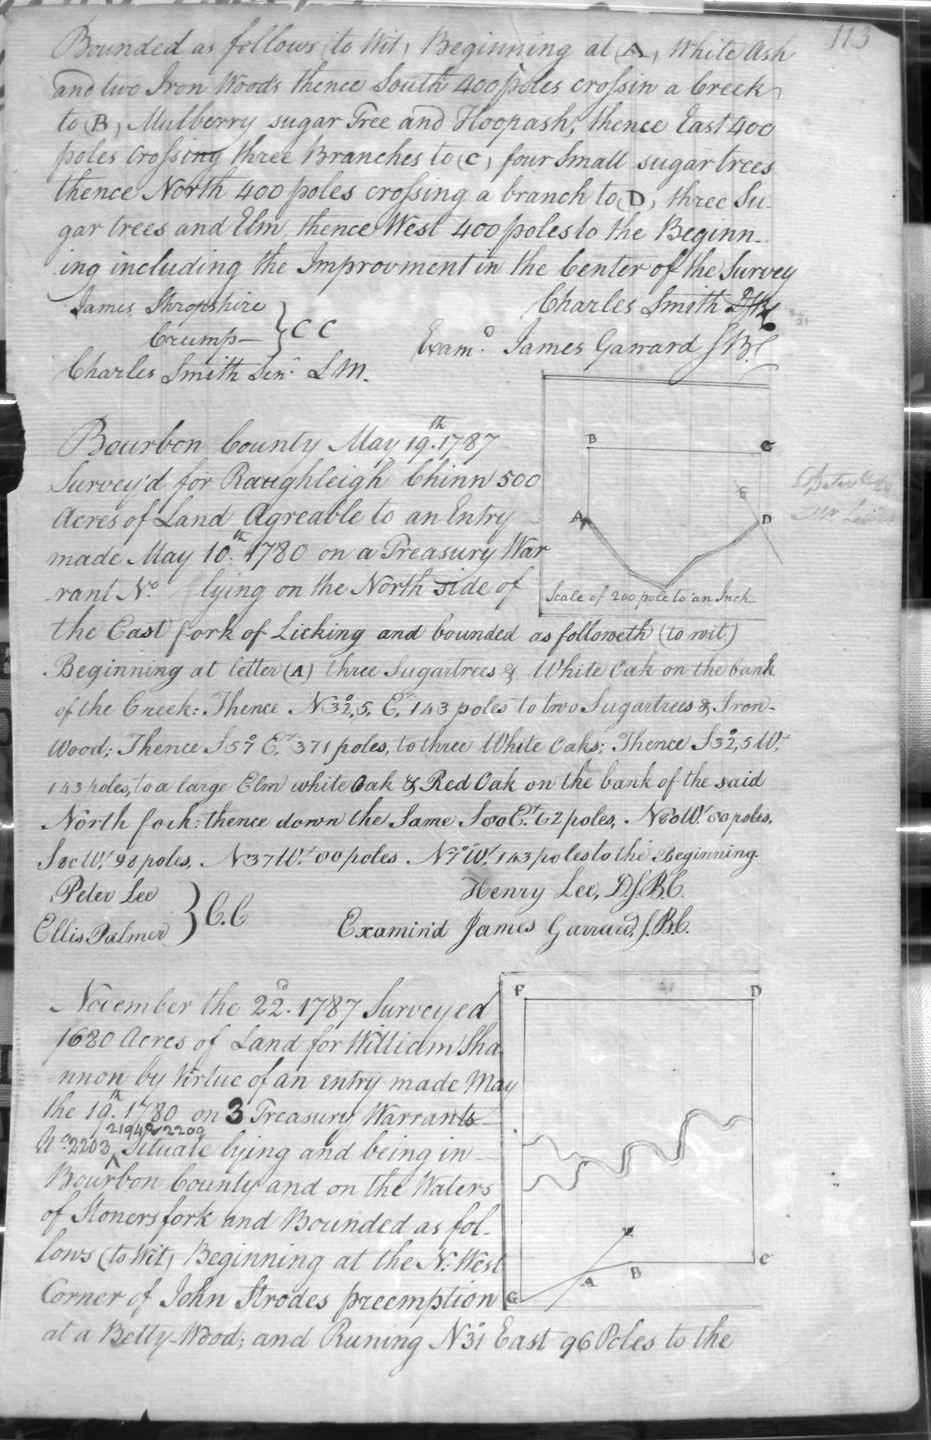 113
Bounded as follows (to Wit) Beginning at (A) White Ash
and two Iron Woods thence South 400 poles crossin a Creek
to (B) Mulberry sugar Tree and Hoopash, thence East 400
poles crossing three Branches to (C) four Small sugar trees
thence North 400 poles crossing a branch to (D) three Su-
gar trees and Elm, thence West 400 poles to the Beginn-
ing including the Improvment in the Center of the Survey
James Shropshire
Crump
} C C
Charles Smith Sen.r L M.
Charles Smith
Exam.d James Garrard S.B.C
Bourbon County May 19.th 1787
Survey'd for Raughleigh Chinn 500
Acres of Land Agreable to an Entry
made May 10.th 1780 on a Treasury War
rant No. lying on the North side of
the East fork of Licking and bounded as followeth (to wit)
Beginning at letter (A) three Sugartrees & White Oak on the bank
of the Creek: Thence N32,5 E.t 143 poles to two Sugartrees & Iron-
Wood; Thence S57° E.t 371 poles, to three White Oaks; Thence S32,5 W.t
143 poles, to a large Elm white Oak & Red Oak on the bank of the said
North fork: thence down the Same S80 E.t 62 poles, N80 W.t 80 poles,
S80 W.t 98 poles, N37 W.t 80 poles N7° W.t 143 poles to the Beginning.
Peter Lee
Ellis Palmer
} C.C
Henry Lee, D.S.B.C.
Examin'd James Garrard, S.B.C.
B
C
A
D
Scale of 200 pole to an Inch
November the 22.d 1787 Surveyed
1680 Acres of Land for William Sha
-nnon by Virtue of an entry made May
the 19.th 1780 on 3 Treasury Warrants
2194 & 2209
No. 2203 ^ Situate lying and being in
Bourbon County and on the Waters
of Stoners fork and Bounded as fol-
lows (to Wit) Beginning at the N. West
Corner of John Strodes preemption
at a Betty-Wood; and Runing N31° East 96 Poles to the
F
D
C
B
A
G